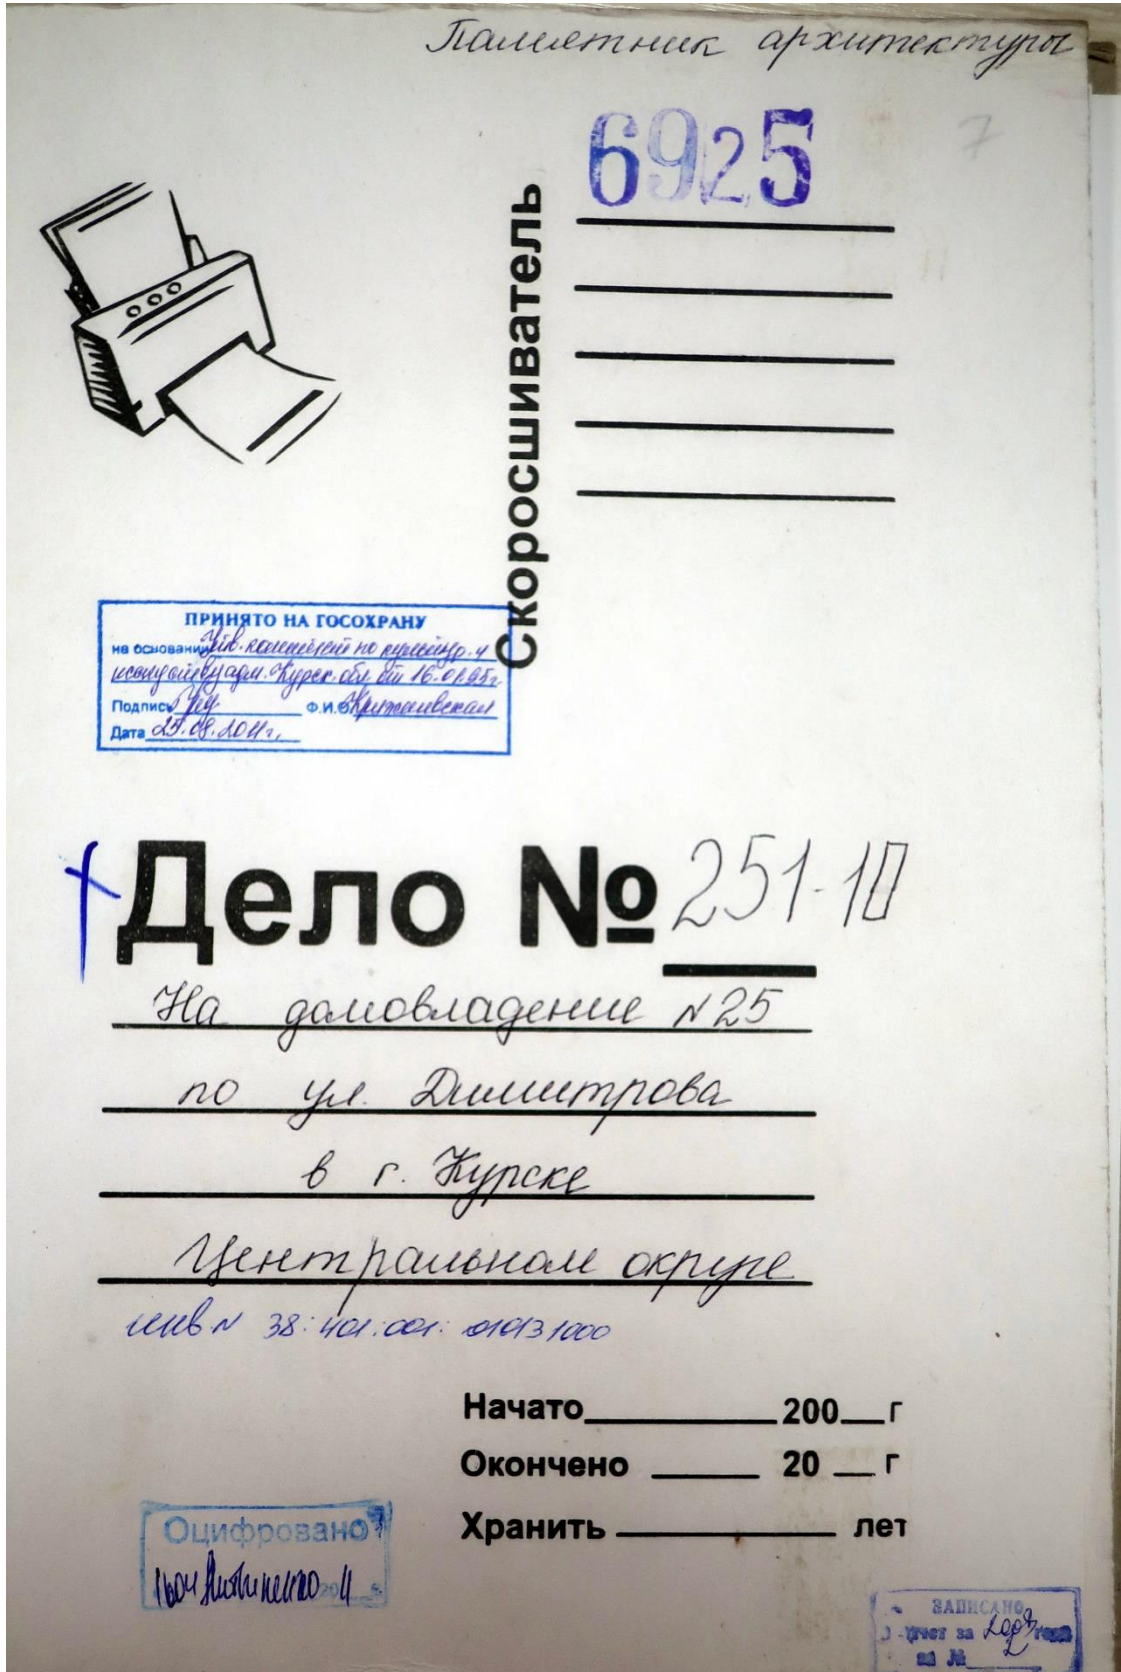 Памятник архитектуры
6925
7
Скоросшиватель
ПРИНЯТО НА ГОСОХРАНУ
на основании
адм. Курск. обл. от 16.01.95г
Подпись Ф.И.О.
Дата 25.08.2011г.
Дело № 251-10
На домовладение N 25
по ул. Димитрова
в г. Курске
Центральном округе
инв N 38:401:001:010131000
Начато 200 г
Окончено 20 г
Хранить лет
Оцифровано
2011 г.
ЗАПИСАНО
отчет за 2003 года
за №